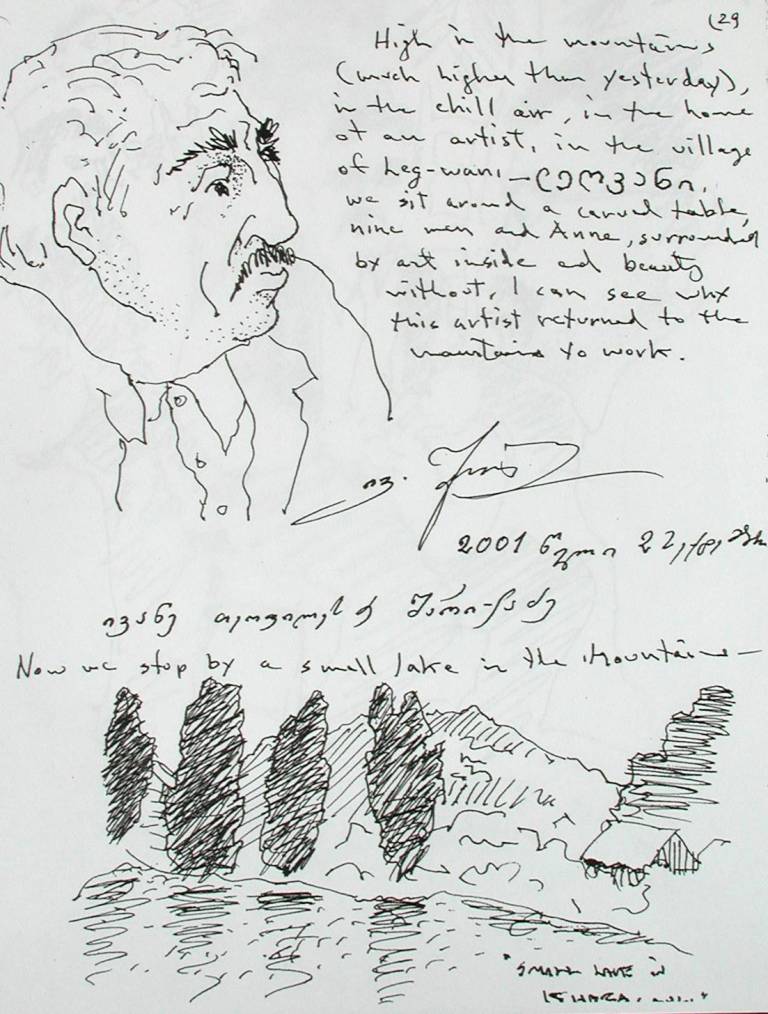 (29
High in the mountains
(much higher than yesterday),
in the chill air, in the home
of an artist, in the village
of Leg-wani — ლეღვანი,
we sit around a carved table,
nine men and Anne, surrounded
by art inside and beauty
without, I can see why
this artist returned to the
mountains to work.
ივ.
2001 წელი 22
ივანე
Now we stop by a small lake in the Mountains —
"SMALL LAKE IN